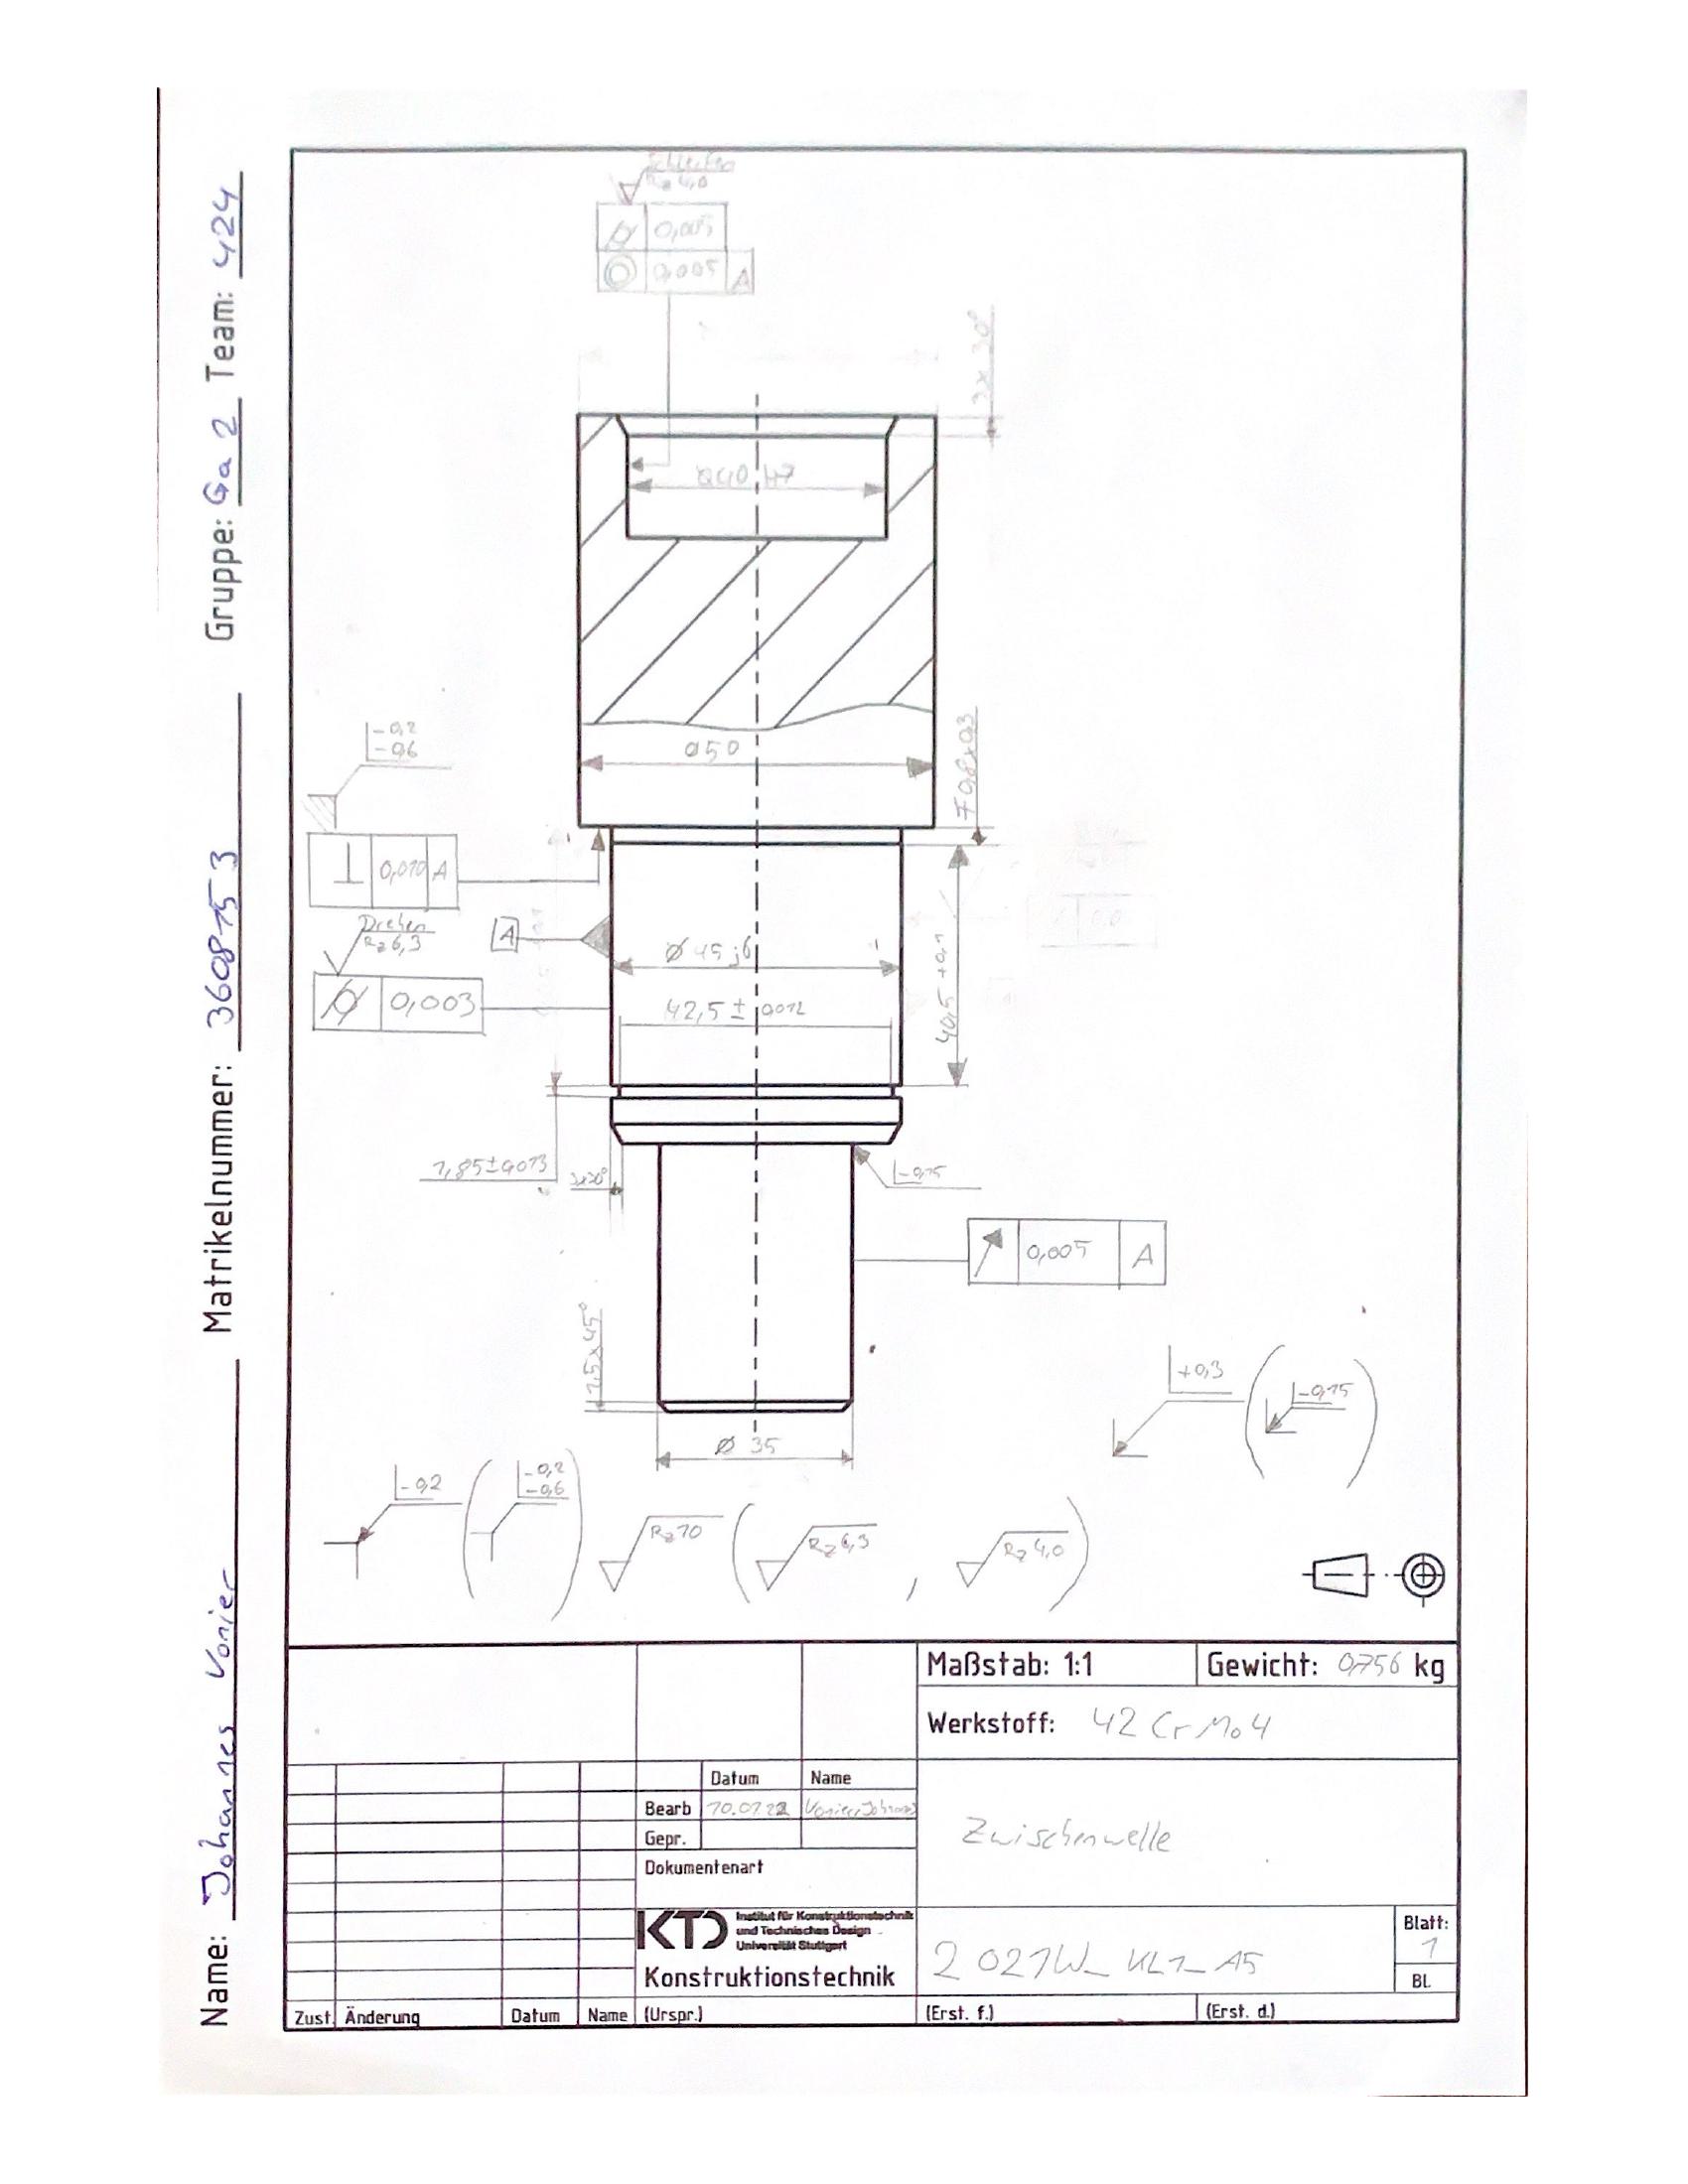 Name: Johannes Vonier Matrikelnummer: 3608153 Gruppe: Ga 2 Team: 424
Schleifen
Rz 4,0
0,005
0,005 A
3x30°
Ø40 H7
-0,2
-0,6
Ø50
F0,8x0,3
0,010 A
Drehen
Rz 6,3
A
Ø 45 j6
0,003
42,5 ± 0012
40,5 +0,1
1,85±0,013
3x30°
-0,15
0,005 A
1,5x45°
Ø 35
+0,3
-0,15
-0,2
-0,2
-0,6
Rz 10
Rz 6,3
,
Rz 4,0
Maßstab: 1:1
Gewicht: 0,756 kg
Werkstoff: 42 CrMo4
Datum Name
Bearb 10.01.22 Vonier, Johannes
Gepr.
Zwischenwelle
Dokumentenart
KTD Institut für Konstruktionstechnik
und Technisches Design
Universität Stuttgart
Konstruktionstechnik
2021W_KL1_A5
Blatt:
1
Bl.
Zust. Änderung Datum Name (Urspr.) (Erst. f.) (Erst. d.)